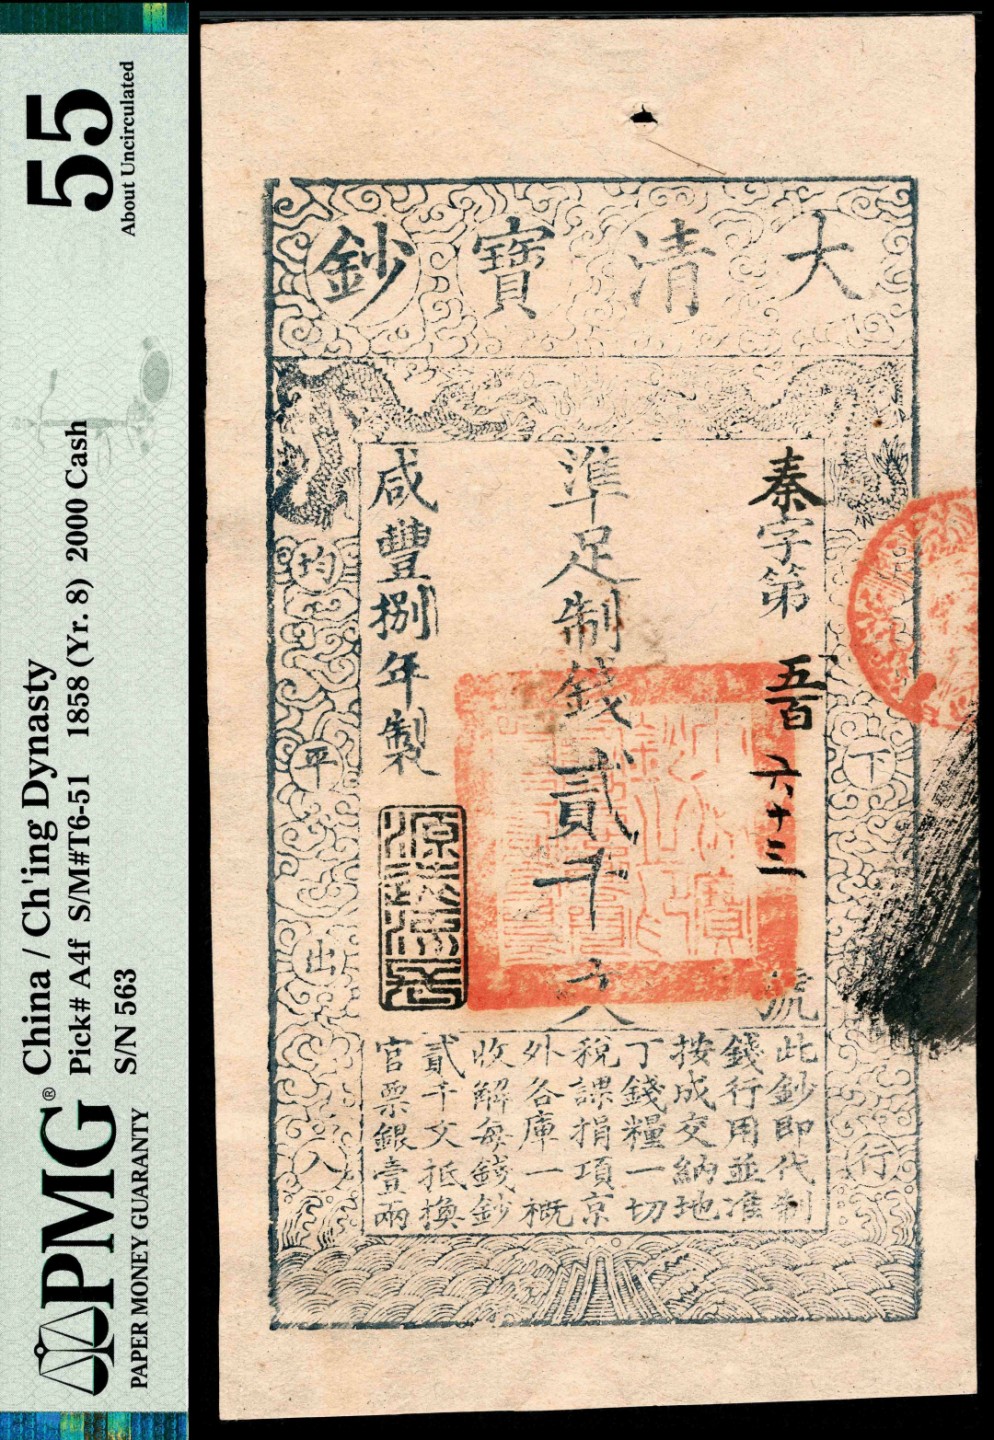 PMG®
PAPER MONEY GUARANTY
China / Ch'ing Dynasty
Pick# A4f S/M#T6-51 1858 (Yr. 8) 2000 Cash
S/N 563
55
About Uncirculated
大清寶鈔
下
行
秦字第五百六十三號
準足制錢貳千文
咸豐捌年製
均平出入
此鈔即代制
錢行用並准
按成交納地
丁錢糧一切
稅課捐項京
外各庫一概
收解每錢鈔
貳千文抵換
官票銀壹兩